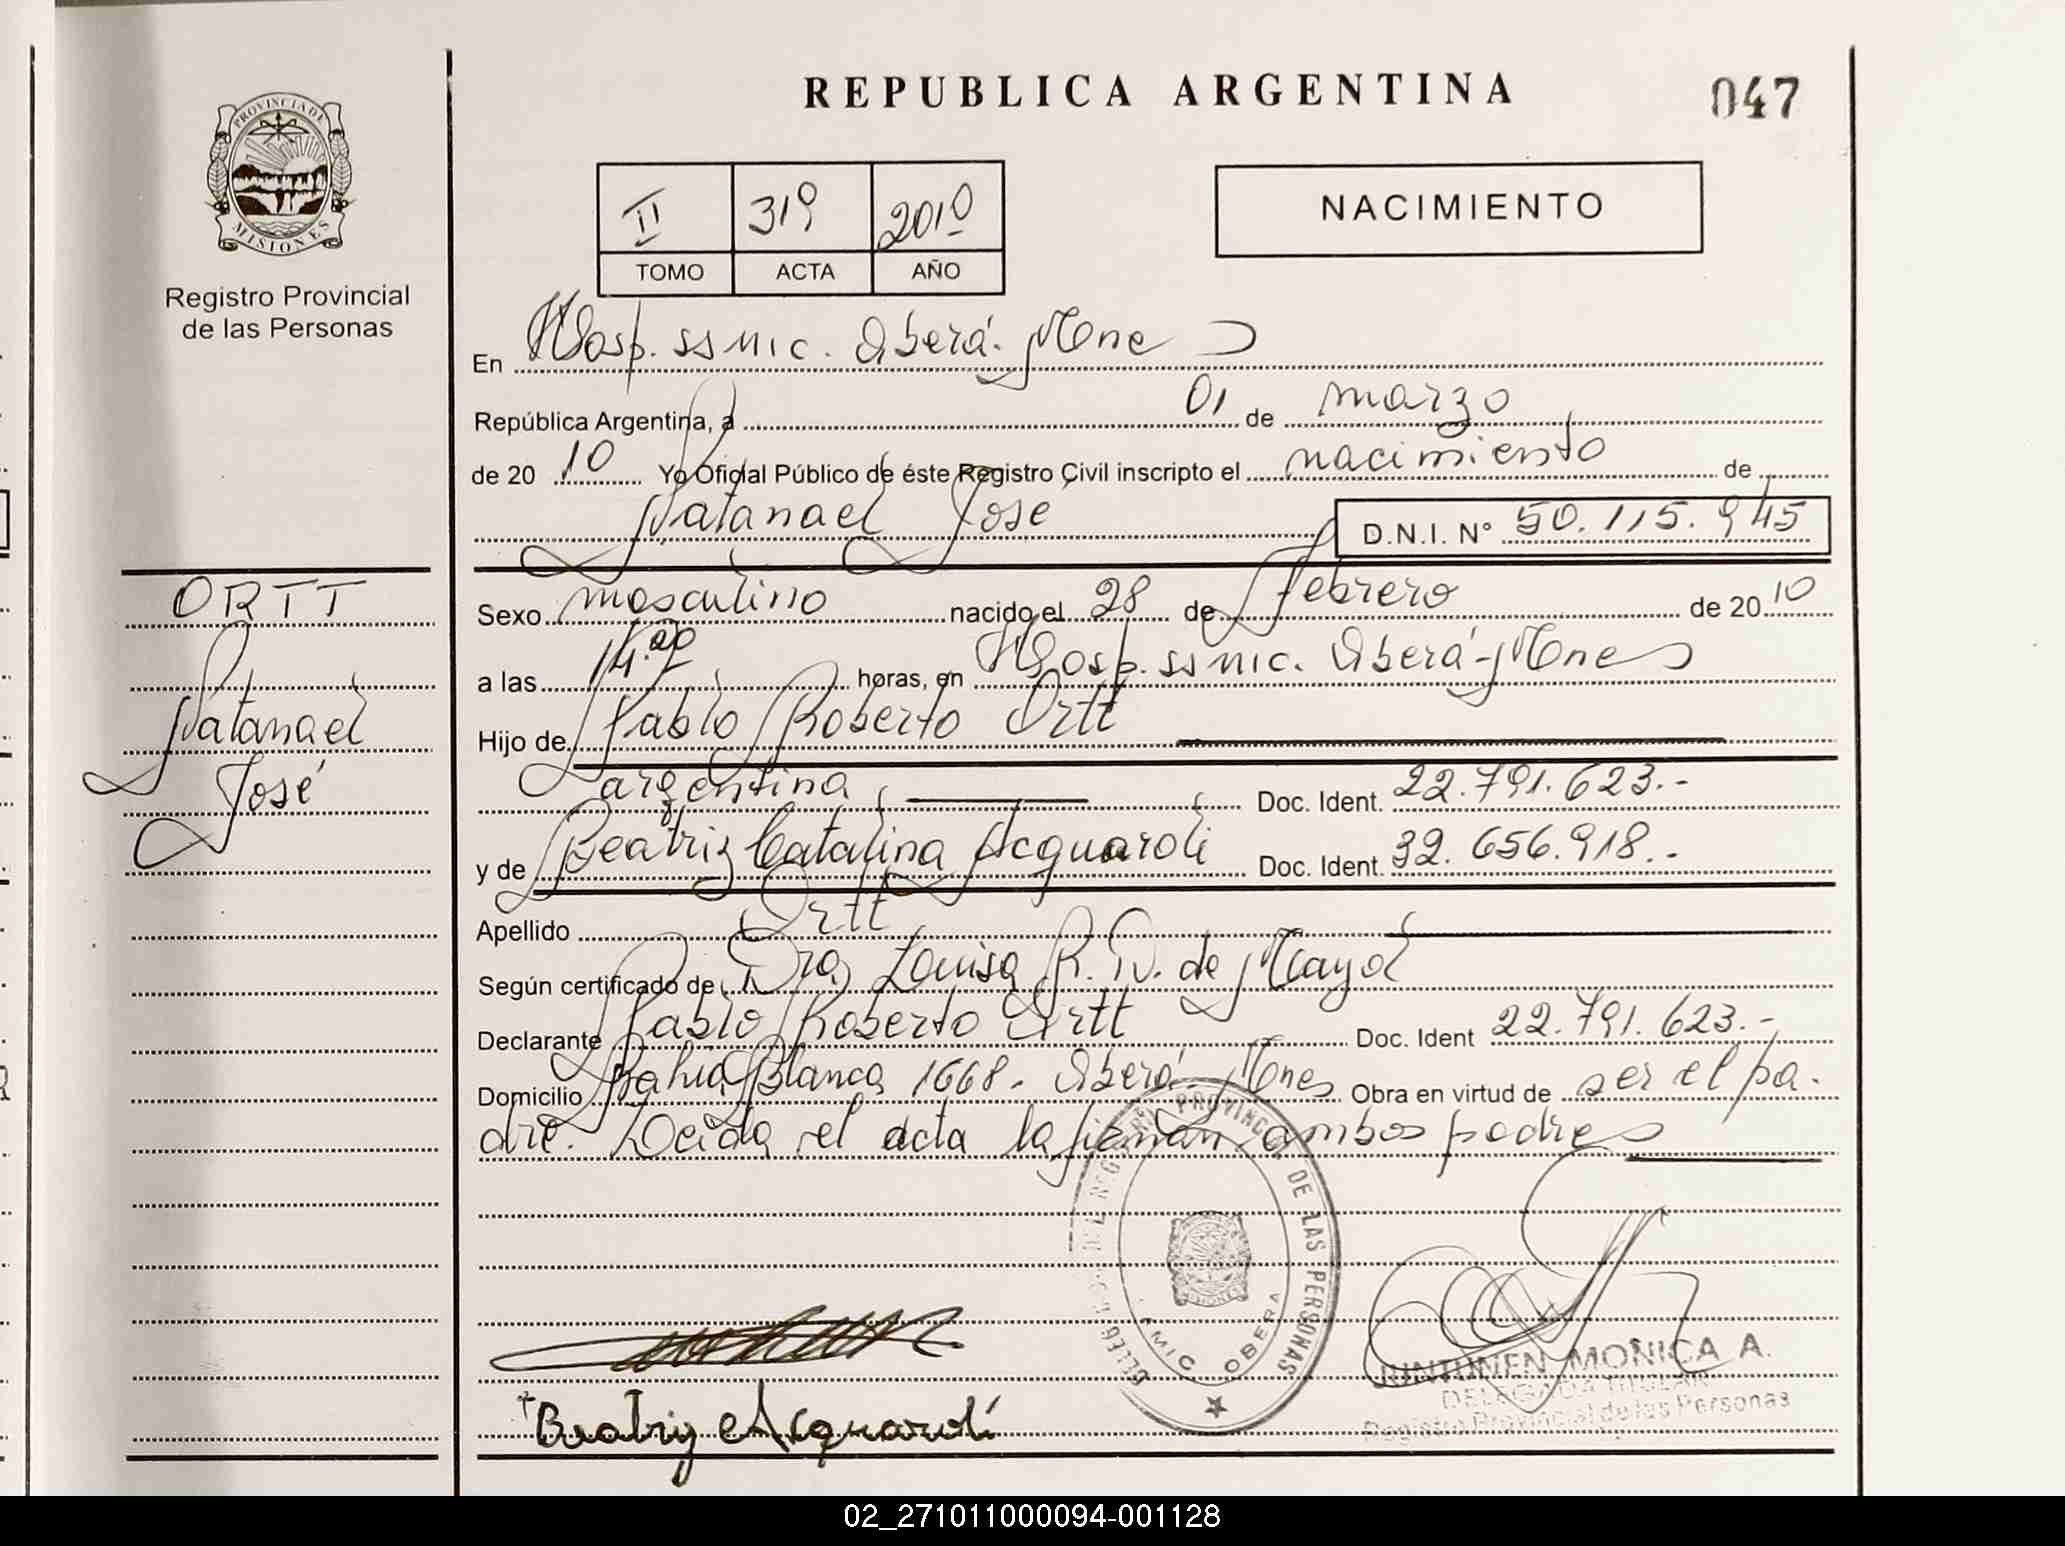 REPUBLICA ARGENTINA
047
PROVINCIA DE
MISIONES
Registro Provincial
de las Personas
II 319 2010
TOMO ACTA AÑO
NACIMIENTO
En Hosp. SSMIC. Oberá. Mnes
República Argentina, a 01 de marzo
de 20 10 Yo Oficial Público de éste Registro Civil inscripto el nacimiento de
Natanael José
D.N.I. N° 50.115.945
ORTT
Natanael
José
Sexo masculino nacido el 28 de febrero de 20 10
a las horas, en Hosp. SSMIC. Oberá-Mnes
Hijo de Pablo Roberto Ortt
argentina Doc. Ident. 22.791.623.-
y de Beatriz Catalina Acquaroli Doc. Ident. 32.656.918.-
Apellido Ortt
Según certificado de Dra. Louisa R. de Mayol
Declarante Pablo Roberto Ortt Doc. Ident 22.791.623.-
Domicilio Bahia Blanca 1668. Oberá. Mnes Obra en virtud de ser el pa.
dre. Leida el acta la firman ambos padres
PROVINCIAL DE LAS PERSONAS
MISIONES
SSMIC OBERA
Beatriz Acquaroli
JUNTUNEN MONICA A.
DELEGADA TITULAR
Registro Provincial de las Personas
02_271011000094-001128